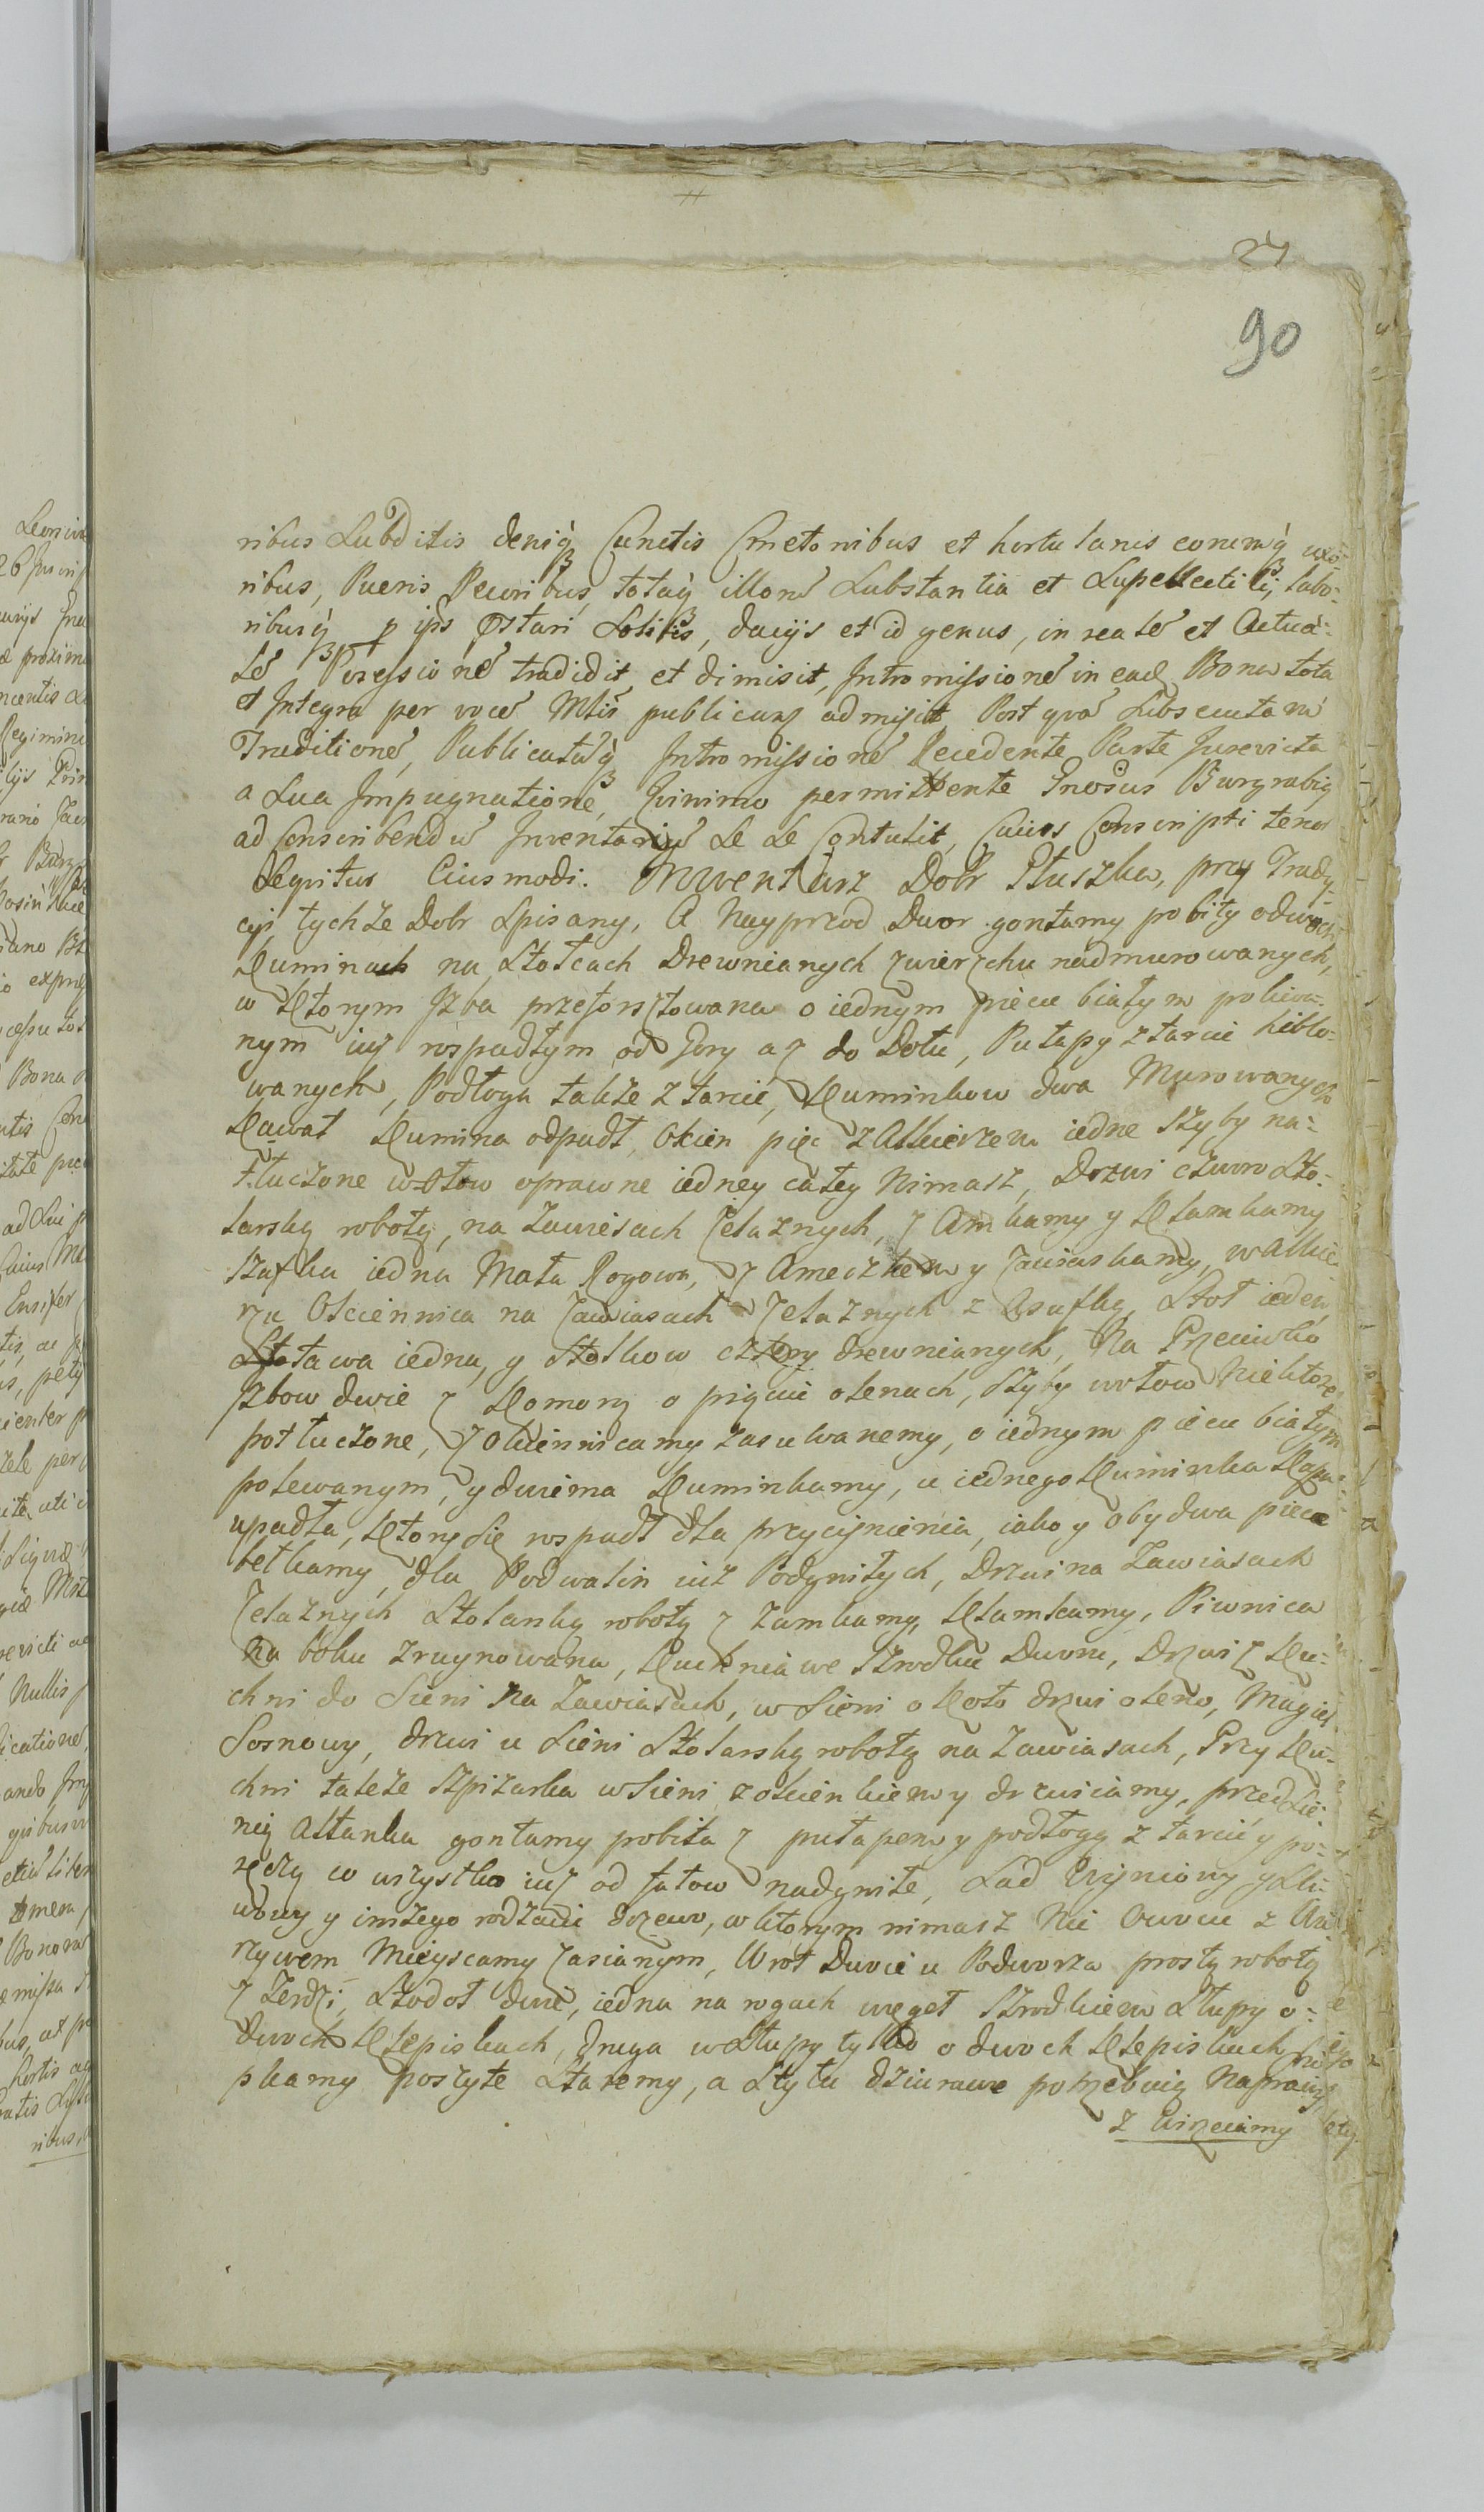 27
90
ribus Subditis deniq́ Cunctis Cmetonibus et hortulanis eorumq́ uxo-
ribus, Pueris Pecoribus, totaq́ illorũ Substantia et Supellectili, labo-
ribusq́ p ip̃s p̃stari Solitis, dacijs et id genus, in realẽ et Actua-
lẽ Possessionẽ tradidit, et dimisit, Intromissionẽ in eaq Bona tota
et Integra per vocẽ Mlis̃ publicavq admisit Post quã Subsecutam̃
Traditionẽ, Publicatãq́ Intromissionẽ Recedente Parte Jurevicta
a Sua Impugnationẽ, Quinimo permittente Gnosus Burgrabiq
ad Conscribendũ Inventariũ Se Se Contulit, Cuius Conscripti tenor
Sequitur Eiusmodi. Inwentarz Dobr Pluszka, przy Trady-
cyi tychże Dobr Spisany, A Nayprzod Dwor gontamy pobity o dwoch
Kuminach na Stołcach Drewnianych zwierzchu nadmurowanych,
w ktorym Izba przeforsztowana o iednym piecu białym poliwa-
nym iuz rospadłym od Gory az do Dołu, Pułapy z tarcic heblo-
wanych, Podłoga także z tarcic, Kuminkow dwa Murowanych
Kawał Kumina odpadł, Okien pięc z Alkierzem iedne szyby na-
tłuczone w ołow oprawne iedney całey Nimasz, Drzwi czworo Sto-
larską robotą, na Zawiesach żelaznych, z Amkamy y Klamkamy
Szafka iedna Mała Rogowa, z Ameczkiem y Zawiaskamy, w Alkie-
rzu Okiennica na Zawiasach Żelaznych z Zasufką, Stoł ieden
Ława iedna, y Stołkow cztery drewnianych, Na Przeciwko
Izbow dwie z Komorą o pięciu oknach, szyby w ołow Niektore
potłuczone, z Okiennicamy zasuwanemy, o iednym piecu białym
polewanym, y dwiema Kuminkamy, u iednego Kuminka Kapa
upadła, ktory Się rospadł dla przycisnienia, iako y obydwa piece
belkamy, dla Podwalin iuż Podgniłych, Drzwi na Zawiasach
Żelaznych Stolarską robotą z zamkamy, Klamkamy, Piwnica
Na boku zruynowana, Kuchnia we Szrodku Dworu, Drzwi z Ku-
chni do Sieni Na Zawiasach, w Sieni o Koło drzwi okno, Magiel
Sosnowy, drzwi u Sieni Stolarską robotą na Zawiasach, Przy Ku-
chni także Szpiżarka w Sieni z okienkiem y drzwiamy, przed Sie-
nią Altanka gontamy pobita z pułapem y podłogą z tarcic y po-
ręczą co wszystko iuz od fałow nadgniłe, Sad Wiśniowy y Sli-
wowy y inszego rodzaiu drzewo, w ktorym nimasz Nic Owocu z Wa-
rzywem Mieyscamy zasianym, Wrot Dwoie u Podworza prostą robotą
z Żerdzi, Stodoł dwie, iedna na rogach węgeł Szrodkiem Słupy o-
dwoch Klepiskach, Druga w Słupy tylko o dwoch Klepiskach
pkamy poszyte Staremy, a Stylu dziurawe potrzebuią Naprawy,
z Wrzeciamy